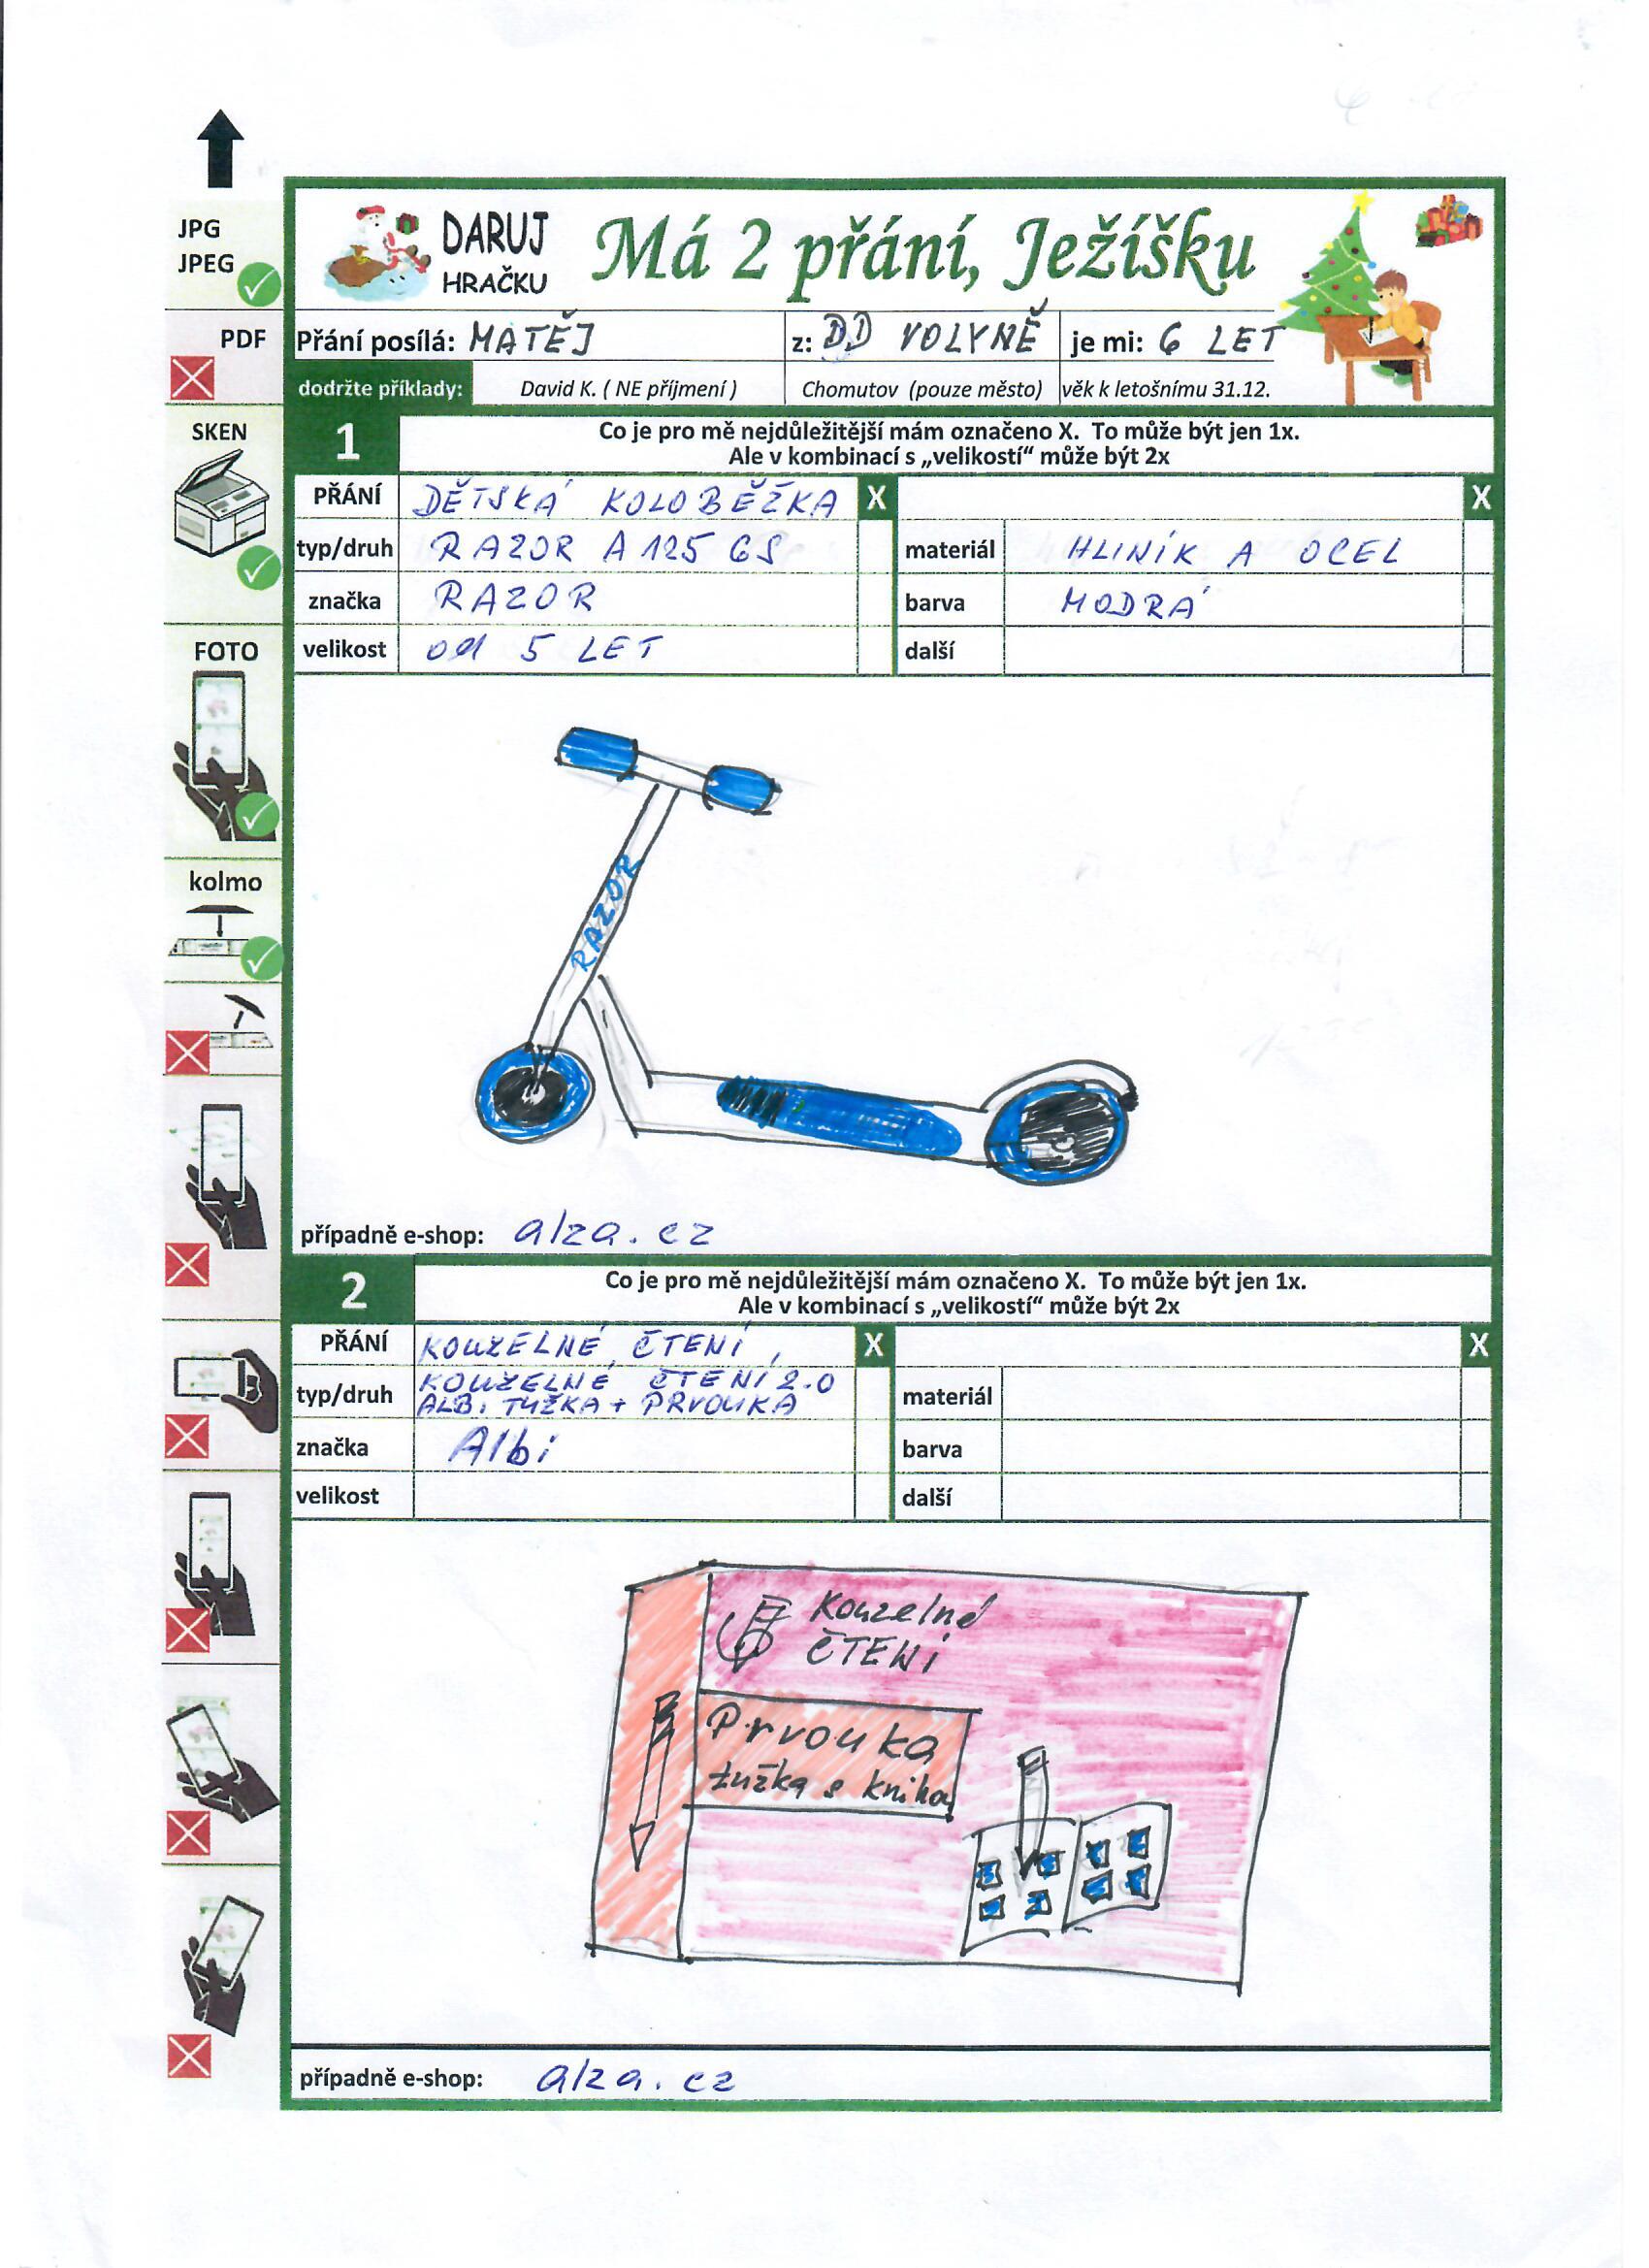 JPG
JPEG
PDF
SKEN
FOTO
kolmo
DARUJ
HRAČKU
Má 2 přání, Ježíšku
Přání posílá: MATĚJ z: DD VOLYNĚ je mi: 6 LET
dodržte příklady: David K. ( NE příjmení ) Chomutov (pouze město) věk k letošnímu 31.12.
1 Co je pro mě nejdůležitější mám označeno X. To může být jen 1x.
Ale v kombinací s „velikostí“ může být 2x
PŘÁNÍ DĚTSKÁ KOLOBĚŽKA X X
typ/druh RAZOR A125 GS materiál HLINÍK A OCEL
značka RAZOR barva MODRÁ
velikost od 5 LET další
RAZOR
případně e-shop: alza.cz
2 Co je pro mě nejdůležitější mám označeno X. To může být jen 1x.
Ale v kombinací s „velikostí“ může být 2x
PŘÁNÍ KOUZELNÉ ČTENÍ, X X
typ/druh KOUZELNÉ ČTENÍ 2.0
ALBI TUŽKA + PRVOUKA materiál
značka Albi barva
velikost další
Kouzelné
ČTENÍ
Prvouka
tužka s knihou
případně e-shop: alza.cz